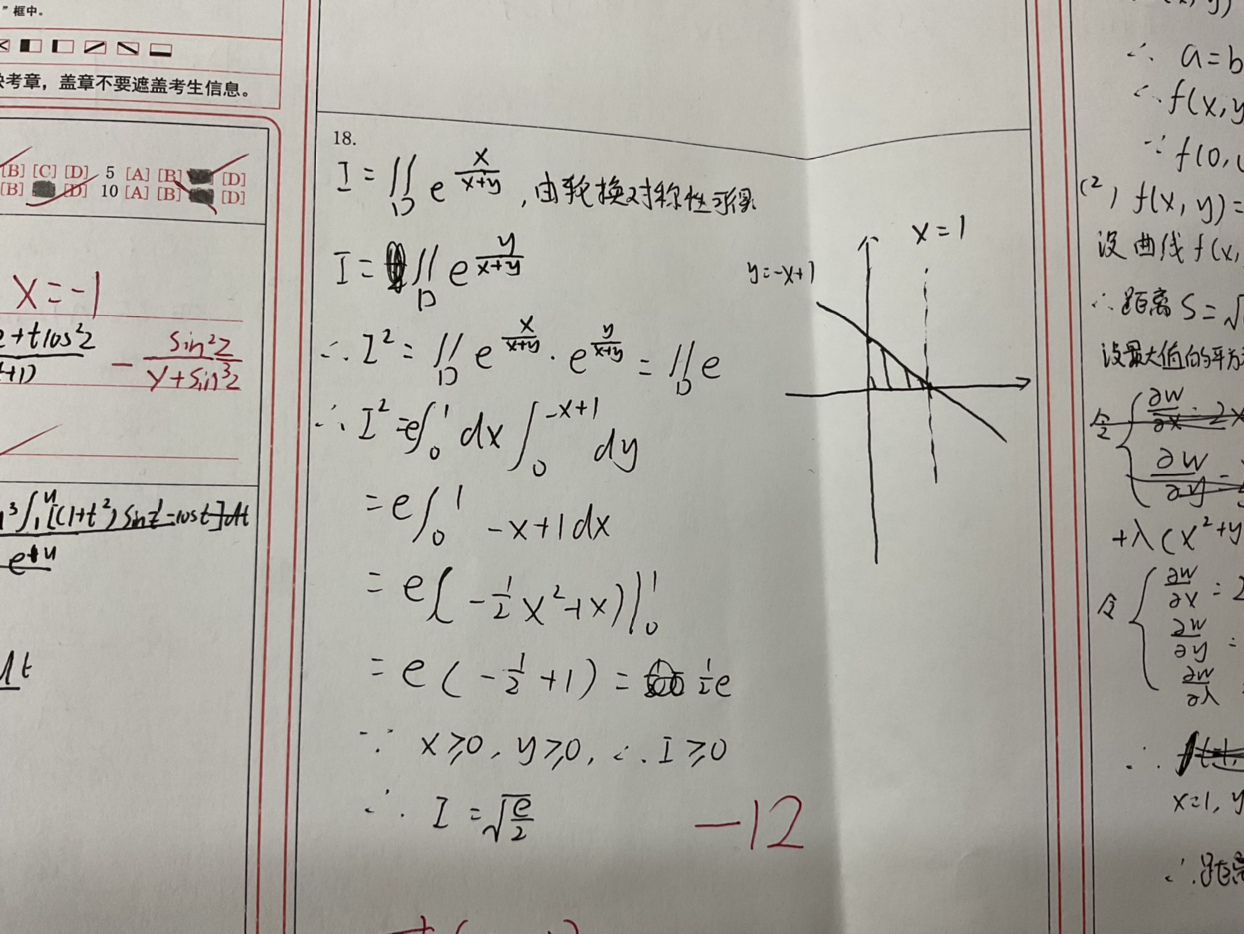 ”框中。
缺考章，盖章不要遮盖考生信息。
[B] [C] [D] 5 [A] [B] [D]
[B] [D] 10 [A] [B] [D]
x = -1
- \frac{\sin^2 z}{y+\sin^3 z}
e^{+u}
dt
18.
I = ∬_D e^{\frac{x}{x+y}}, 由轮换对称性可得
I = ∬_D e^{\frac{y}{x+y}}
∴ I² = ∬_D e^{\frac{x}{x+y}} · e^{\frac{y}{x+y}} = ∬_D e
∴ I² = e∫_0^1 dx ∫_0^{-x+1} dy
= e∫_0^1 -x+1 dx
= e(-\frac{1}{2}x²+x)|_0^1
= e(-\frac{1}{2}+1) = \frac{1}{2}e
∵ x≥0, y≥0, ∴ I≥0
∴ I = \sqrt{\frac{e}{2}}
-12
y=-x+1
x=1
∴ a=b
∴ f(x,y
∵ f(0,
(2) f(x,y)=
设曲线f(x,
∴距离S=√
设最大值的平方
令 { \frac{∂w}{∂x} = 2x
\frac{∂w}{∂y} =
+λ(x²+y
令 { \frac{∂w}{∂x} = 2
\frac{∂w}{∂y} =
\frac{∂w}{∂λ}
∴
x=1, y
∴距离